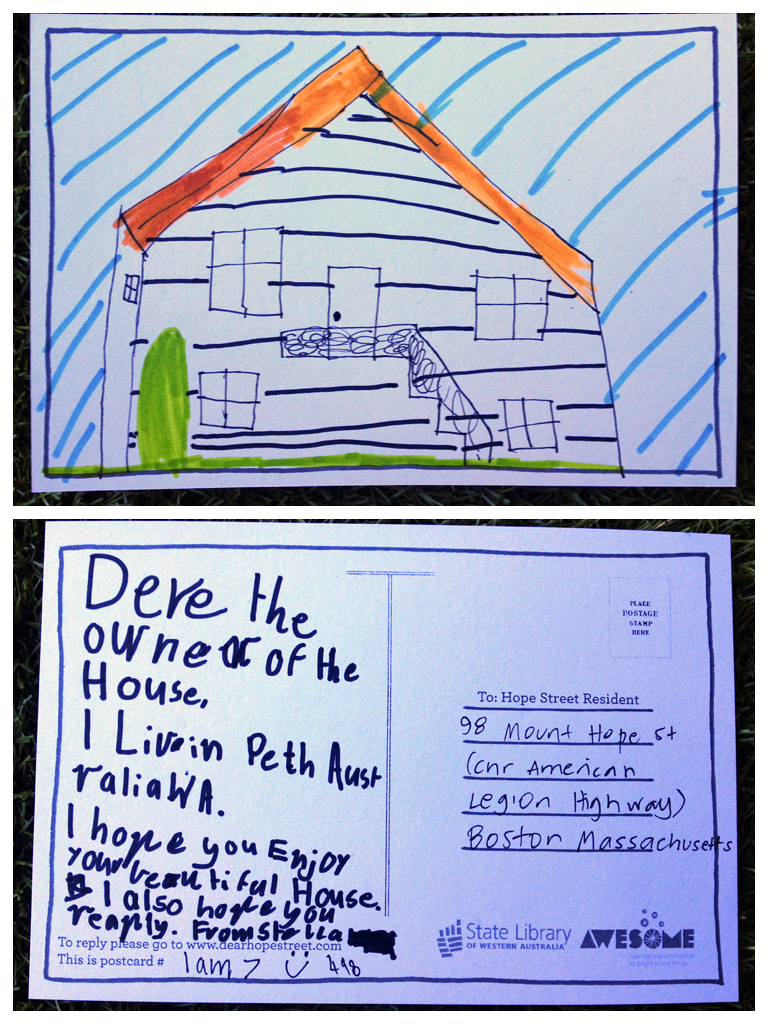 Dere the
owner of the
House,
I Live in Peth Aust
raliaWA.
I hope you Enjoy
your beautiful House.
I also hope you
reaply. From Stella
To reply please go to www.dearhopestreet.com
This is postcard # I am 7 498
PLACE
POSTAGE
STAMP
HERE
To: Hope Street Resident
98 Mount Hope St
(cnr American
Legion Highway)
Boston Massachusetts
State Library
OF WESTERN AUSTRALIA
AWESOME